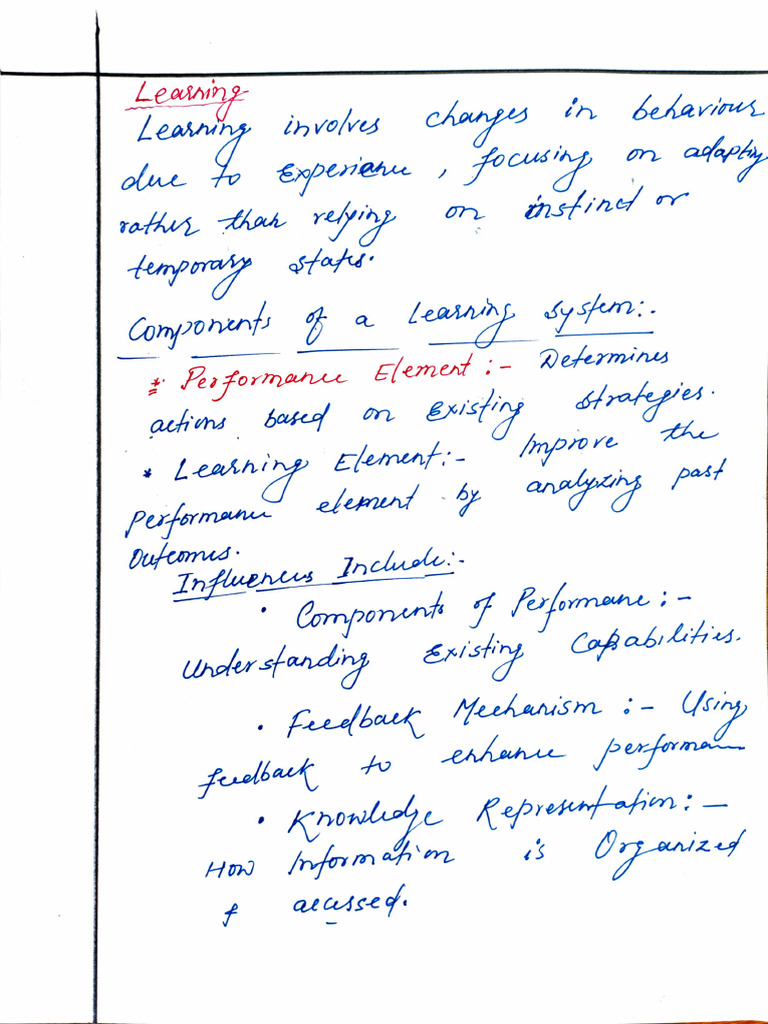 Learning
Learning involves changes in behaviour
due to Experience, focusing on adapting
rather than relying on instinct or
temporary states.
Components of a Learning System:-
* Performance Element :- Determines
actions based on Existing strategies.
* Learning Element:- Improve the
Performance element by analyzing past
Outcomes.
Influences Include:-
• Components of Performance :-
Understanding Existing Capabilities.
• Feedback Mechanism :- Using
feedback to enhance performance
• Knowledge Representation: -
How Information is Organized
& accessed.